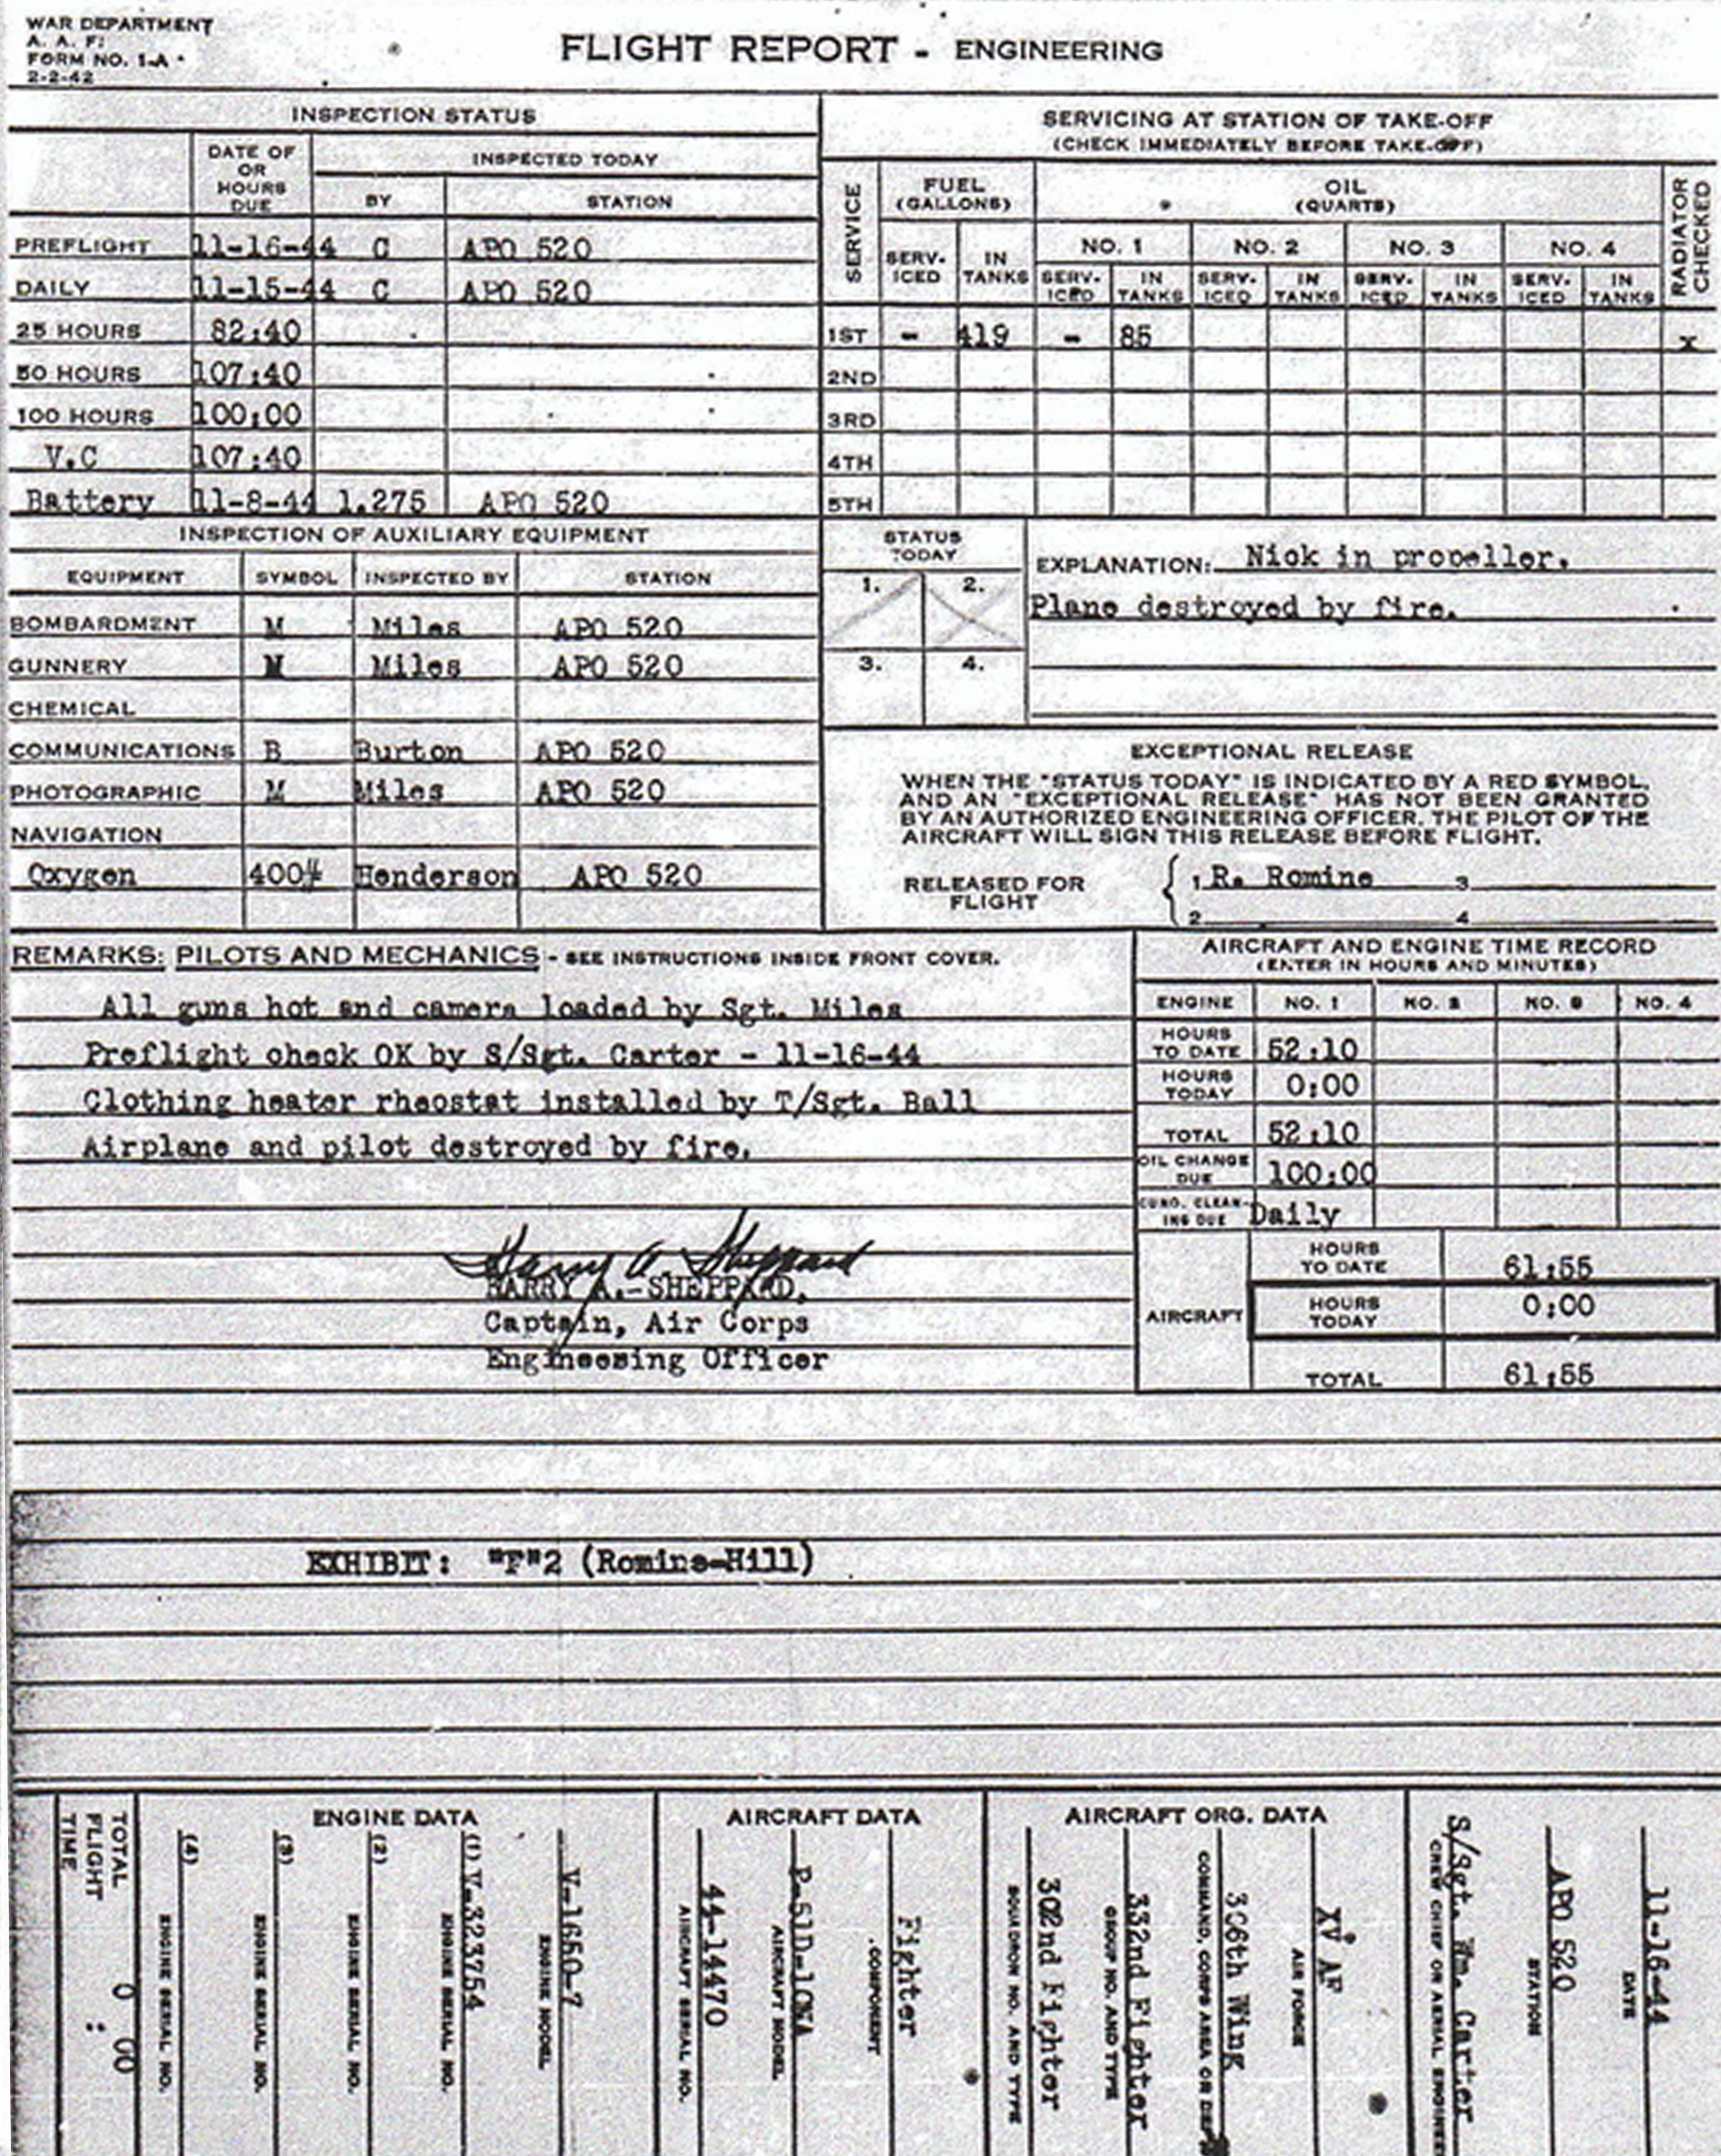 WAR DEPARTMENT
A. A. F.
FORM NO. 1-A
2-2-42
FLIGHT REPORT - ENGINEERING
INSPECTION STATUS
DATE OF OR HOURS DUE
INSPECTED TODAY
BY STATION
PREFLIGHT 11-16-44 C APO 520
DAILY 11-15-44 C APO 520
25 HOURS 82:40
50 HOURS 107:40
100 HOURS 100:00
V.C 107:40
Battery 11-8-44 1.275 APO 520
SERVICING AT STATION OF TAKE-OFF
(CHECK IMMEDIATELY BEFORE TAKE-OFF)
SERVICE
FUEL (GALLONS)
OIL (QUARTS)
RADIATOR CHECKED
NO. 1 NO. 2 NO. 3 NO. 4
SERV-ICED IN TANKS SERV-ICED IN TANKS SERV-ICED IN TANKS SERV-ICED IN TANKS SERV-ICED IN TANKS
1ST - 419 - 85 x
2ND
3RD
4TH
5TH
INSPECTION OF AUXILIARY EQUIPMENT
EQUIPMENT SYMBOL INSPECTED BY STATION
BOMBARDMENT M Miles APO 520
GUNNERY M Miles APO 520
CHEMICAL
COMMUNICATIONS B Burton APO 520
PHOTOGRAPHIC M Miles APO 520
NAVIGATION
Oxygen 400# Henderson APO 520
STATUS TODAY
1. 2.
3. 4.
EXPLANATION: Nick in propeller.
Plane destroyed by fire.
EXCEPTIONAL RELEASE
WHEN THE "STATUS TODAY" IS INDICATED BY A RED SYMBOL,
AND AN "EXCEPTIONAL RELEASE" HAS NOT BEEN GRANTED
BY AN AUTHORIZED ENGINEERING OFFICER, THE PILOT OF THE
AIRCRAFT WILL SIGN THIS RELEASE BEFORE FLIGHT.
RELEASED FOR FLIGHT
1 R. Romine 3
2 4
REMARKS: PILOTS AND MECHANICS - SEE INSTRUCTIONS INSIDE FRONT COVER.
All guns hot and camera loaded by Sgt. Miles
Preflight check OK by S/Sgt. Carter - 11-16-44
Clothing heater rheostat installed by T/Sgt. Ball
Airplane and pilot destroyed by fire.
Harry A. Sheppard
HARRY A. SHEPPARD,
Captain, Air Corps
Engineering Officer
AIRCRAFT AND ENGINE TIME RECORD
(ENTER IN HOURS AND MINUTES)
ENGINE NO. 1 NO. 2 NO. 3 NO. 4
HOURS TO DATE 52:10
HOURS TODAY 0:00
TOTAL 52:10
OIL CHANGE DUE 100:00
CUNO. CLEAN-ING DUE Daily
AIRCRAFT
HOURS TO DATE 61:55
HOURS TODAY 0:00
TOTAL 61:55
EXHIBIT: "F"2 (Romine-Hill)
11-16-44
DATE
APO 520
STATION
S/Sgt. Wm. Carter
CREW CHIEF OR AERIAL ENGINEER
AIRCRAFT ORG. DATA
XV AF
AIR FORCE
306th Wing
COMMAND, CORPS AREA OR DEP
332nd Fighter
GROUP NO. AND TYPE
302nd Fighter
SQUADRON NO. AND TYPE
AIRCRAFT DATA
Fighter
COMPONENT
P-51D-10NA
AIRCRAFT MODEL
44-14470
AIRCRAFT SERIAL NO.
ENGINE DATA
V-1650-7
ENGINE MODEL
(1) V-323754
ENGINE SERIAL NO.
(2)
ENGINE SERIAL NO.
(3)
ENGINE SERIAL NO.
(4)
ENGINE SERIAL NO.
TOTAL FLIGHT TIME 0 : 00